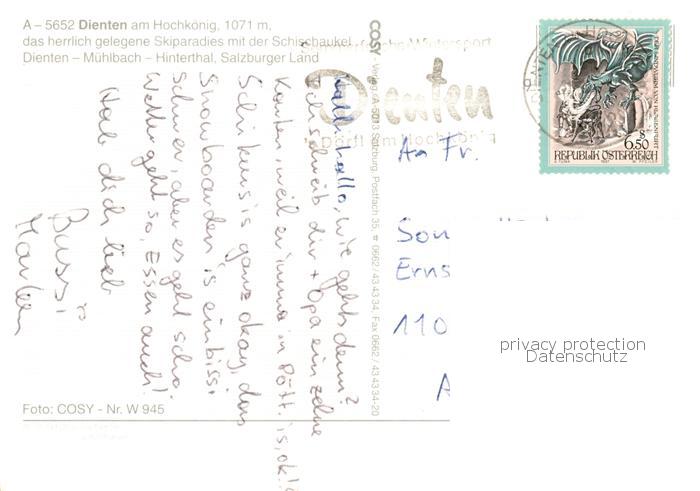 A – 5652 Dienten am Hochkönig, 1071 m,
das herrlich gelegene Skiparadies mit der Schischaukel
Dienten – Mühlbach – Hinterthal, Salzburger Land
Hallihallo, wie gehts denn?
Ich schreib dir + Opa ein zelne
Karten, weil er immer in Pött. is, ok!
Schikurs is ganz okay, das
Snowboarden is ein bissi
schwer, aber es geht scho.
Wetter geht so, Essen auch!
Hab dich lieb
Bussi
COSY - Verlag, A-5013 Salzburg, Postfach 35, 0662 / 43 43 34, Fax 0662 / 43 43 34-20
Wintersport
Dienten
Dorf am Hochkönig
S
6.50
REPUBLIK ÖSTERREICH
An Fr.
Son
Erns
110
A
privacy protection
Datenschutz
Foto: COSY - Nr. W 945